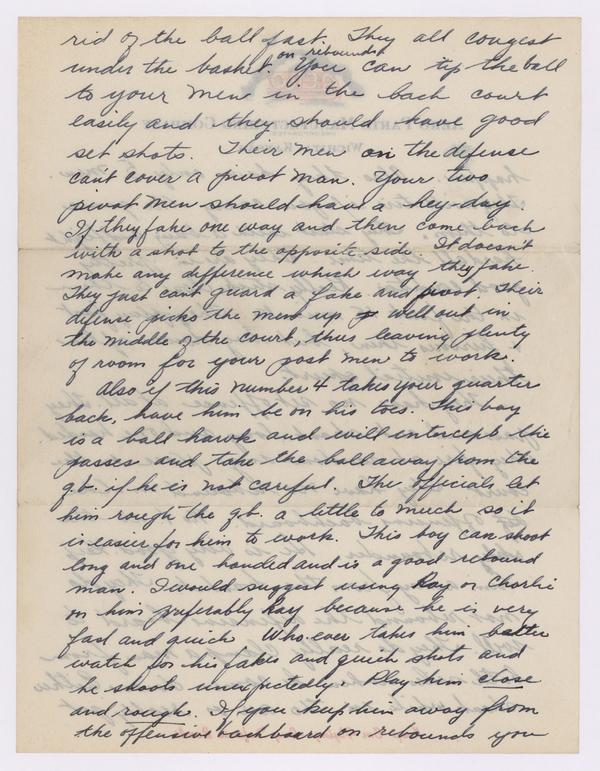 rid of the ball fast. They all congest
on rebounds
under the basket. You can tip the ball
to your men in the back court
easily and they should have good
set shots. Their men on the defense
can't cover a pivot man. Your two
pivot men should have a hey-day.
If they fake one way and then come back
with a shot to the opposite side. It doesn't
make any difference which way they fake.
They just can't guard a fake and pivot. Their
defense picks the men up well out in
the middle of the court, thus leaving plenty
of room for your post men to work.
Also if this number 4 takes your quarter
back, have him be on his toes. This boy
is a ball hawk and will intercept the
passes and take the ball away from the
q.b. if he is not careful. The officials let
him rough the q.b. a little to much so it
is easier for him to work. This boy can shoot
long and one handed and is a good rebound
man. I would suggest using Ray or Charlie
on him preferably Ray because he is very
fast and quick. Who ever takes him better
watch for his fakes and quick shots and
he shoots unexpectedly. Play him close
and rough. If you keep him away from
the offensive backboard on rebounds you